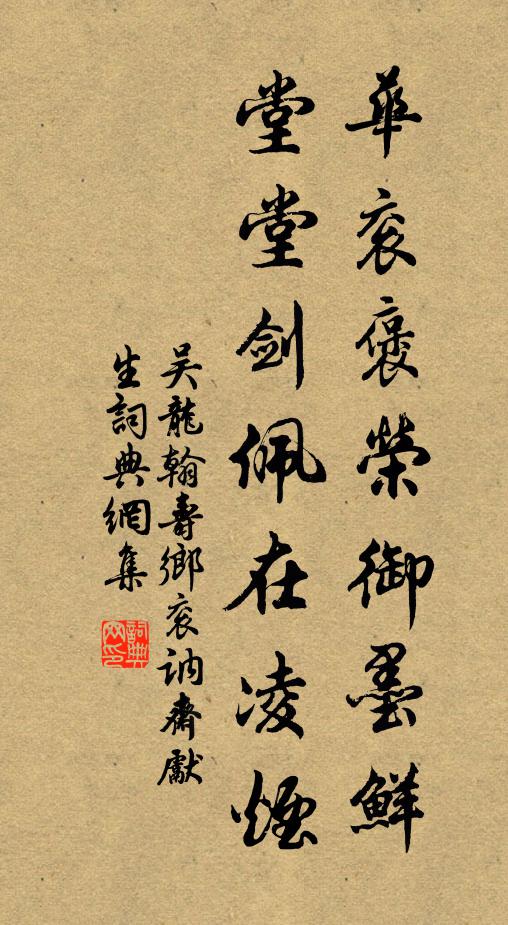 華衮褒榮御墨鮮
堂堂劍佩在凌煙
吴龍翰壽鄉衮訥齋獻
生詞典網集
詞典網印